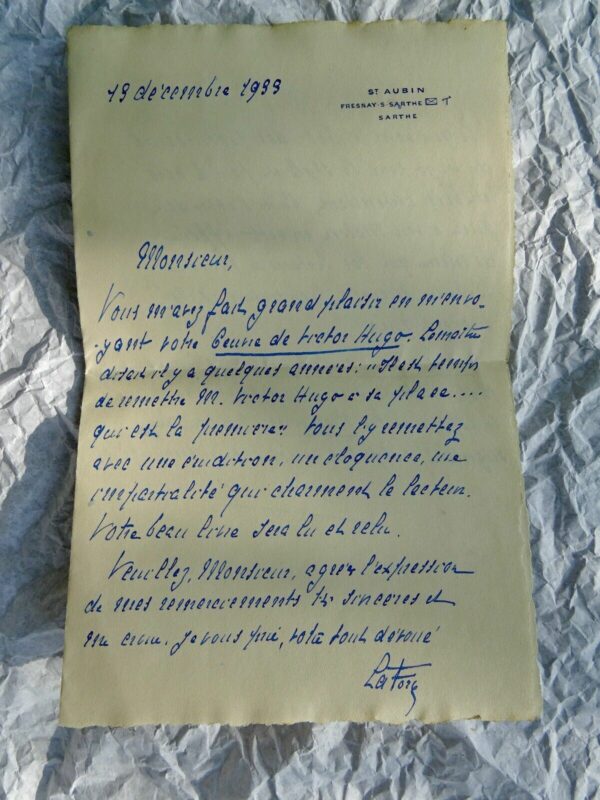 19 décembre 1933
ST AUBIN
FRESNAY-S-SARTHE
SARTHE
Monsieur,
Vous m'avez fait grand plaisir en m'envo-
yant votre Œuvre de Victor Hugo. Lemaître
disait il y a quelques années: "Il est temps
de remettre M. Victor Hugo à sa place....
qui est la première" Vous l'y remettez
avec une érudition, une éloquence, une
impartialité qui charment le lecteur.
Votre beau livre sera lu et relu.
Veuillez, Monsieur, agréer l'expression
de mes remerciements très sincères et
me croire, je vous prie, votre tout dévoué
La Force